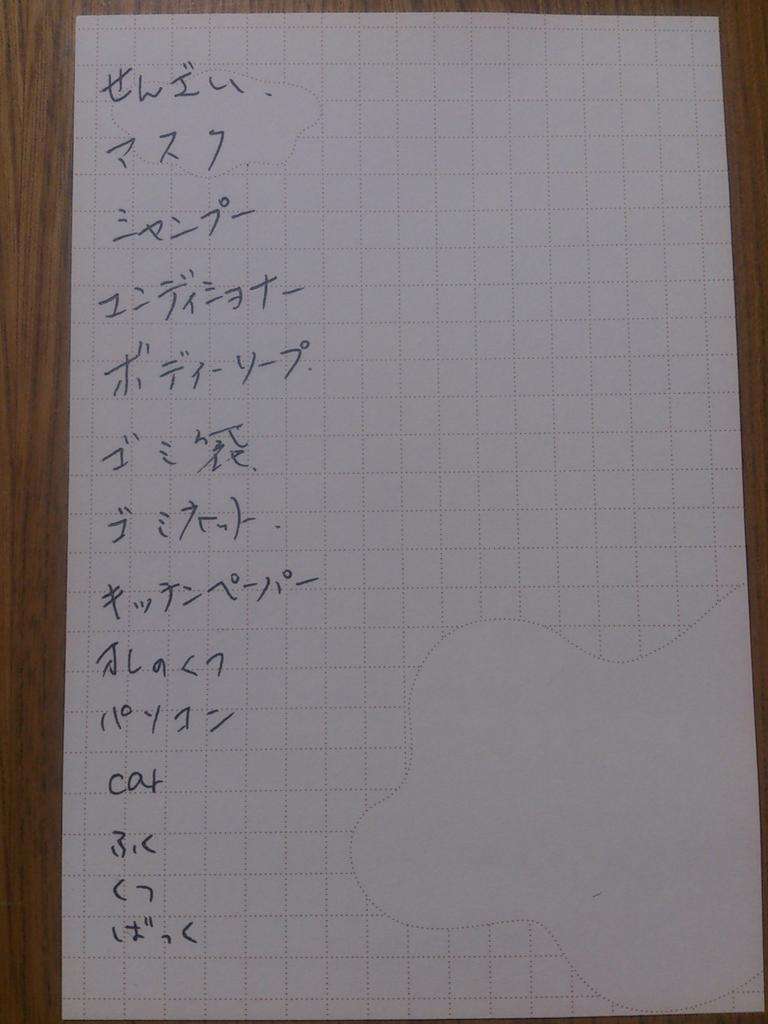 せんざい、
マスク
シャンプー
コンディショナー
ボディーソープ.
ゴミ袋、
ゴミネット.
キッチンペーパー
オレのくつ
パソコン
car
ふく
くつ
ばっく